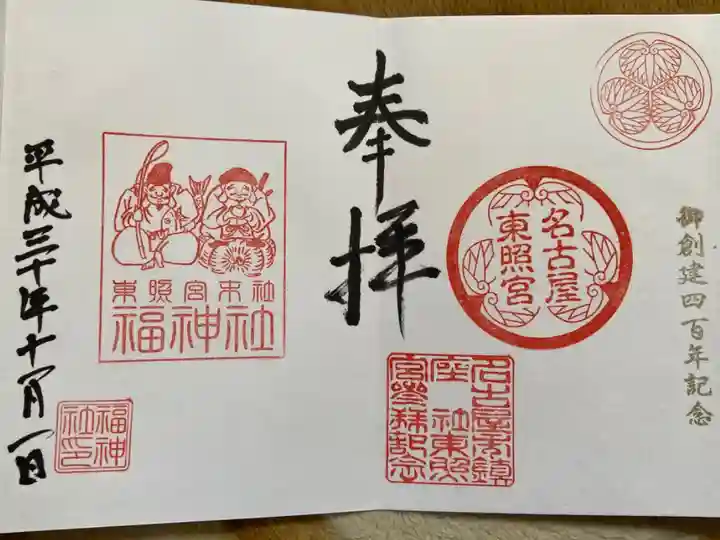 御創建四百年記念
名古屋
東照宮
名古屋市鎮
座 社東照
宮参拝記念
奉拝
東照宮末社
福神社
平成三十年十一月一日
福神
社印